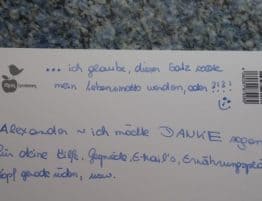 ... ich glaube, dieser Satz sollte
mein Lebensmotto werden, oder ?!?
Alexander ~ ich möchte DANKE sagen
für deine Hilfe, Gespräche, E-Mail's, Ernährungsplä
Kopf gerade rücken, usw.